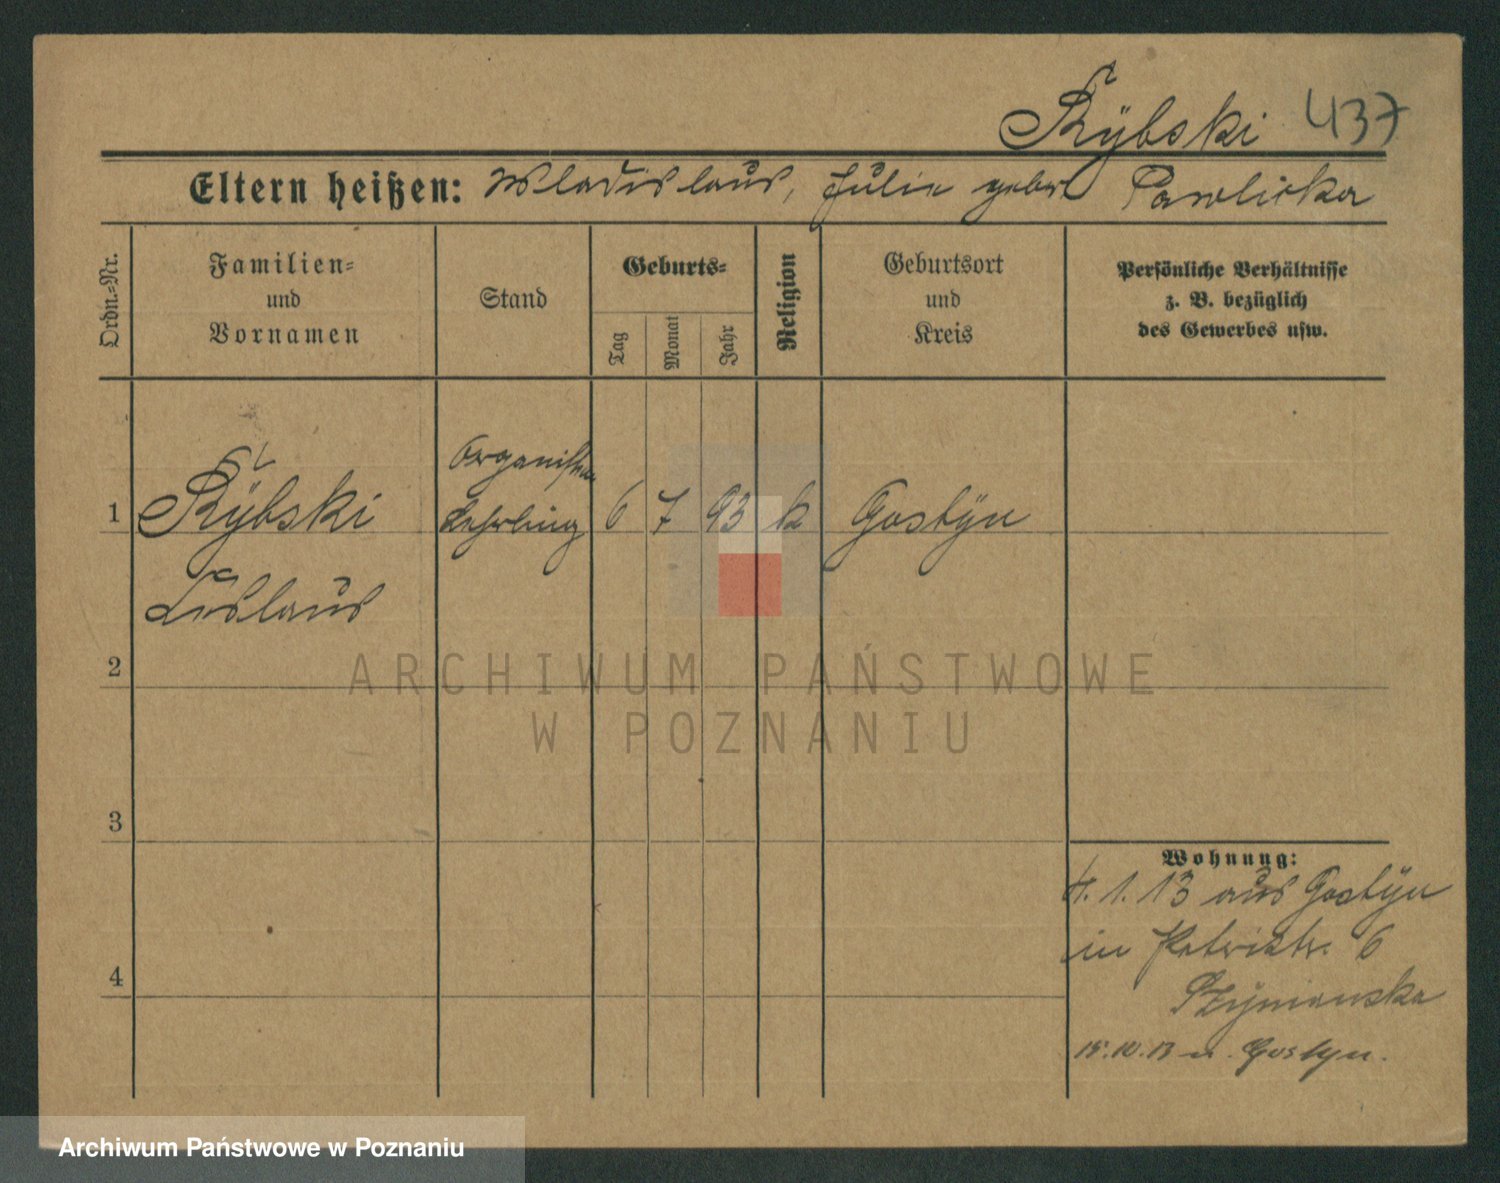 Rÿbski 437
Eltern heißen: Wladislaus, Julie gebor Pawlicka
Ordn.=Nr.
Familien=
und
Vornamen
Stand
Geburts=
Tag
Monat
Jahr
Religion
Geburtsort
und
Kreis
Persönliche Verhältnisse
z. B. bezüglich
des Gewerbes usw.
1 Rÿbski Organisten Lehrling 6 7 93 k Gostÿn
Leslaus
2
3
4
Wohnung:
4. 1. 13 aus Gostÿn
in Petristr. 6
Szÿmanska
15.10.13 n. Gostyn.
ARCHIWUM PAŃSTWOWE
W POZNANIU
Archiwum Państwowe w Poznaniu